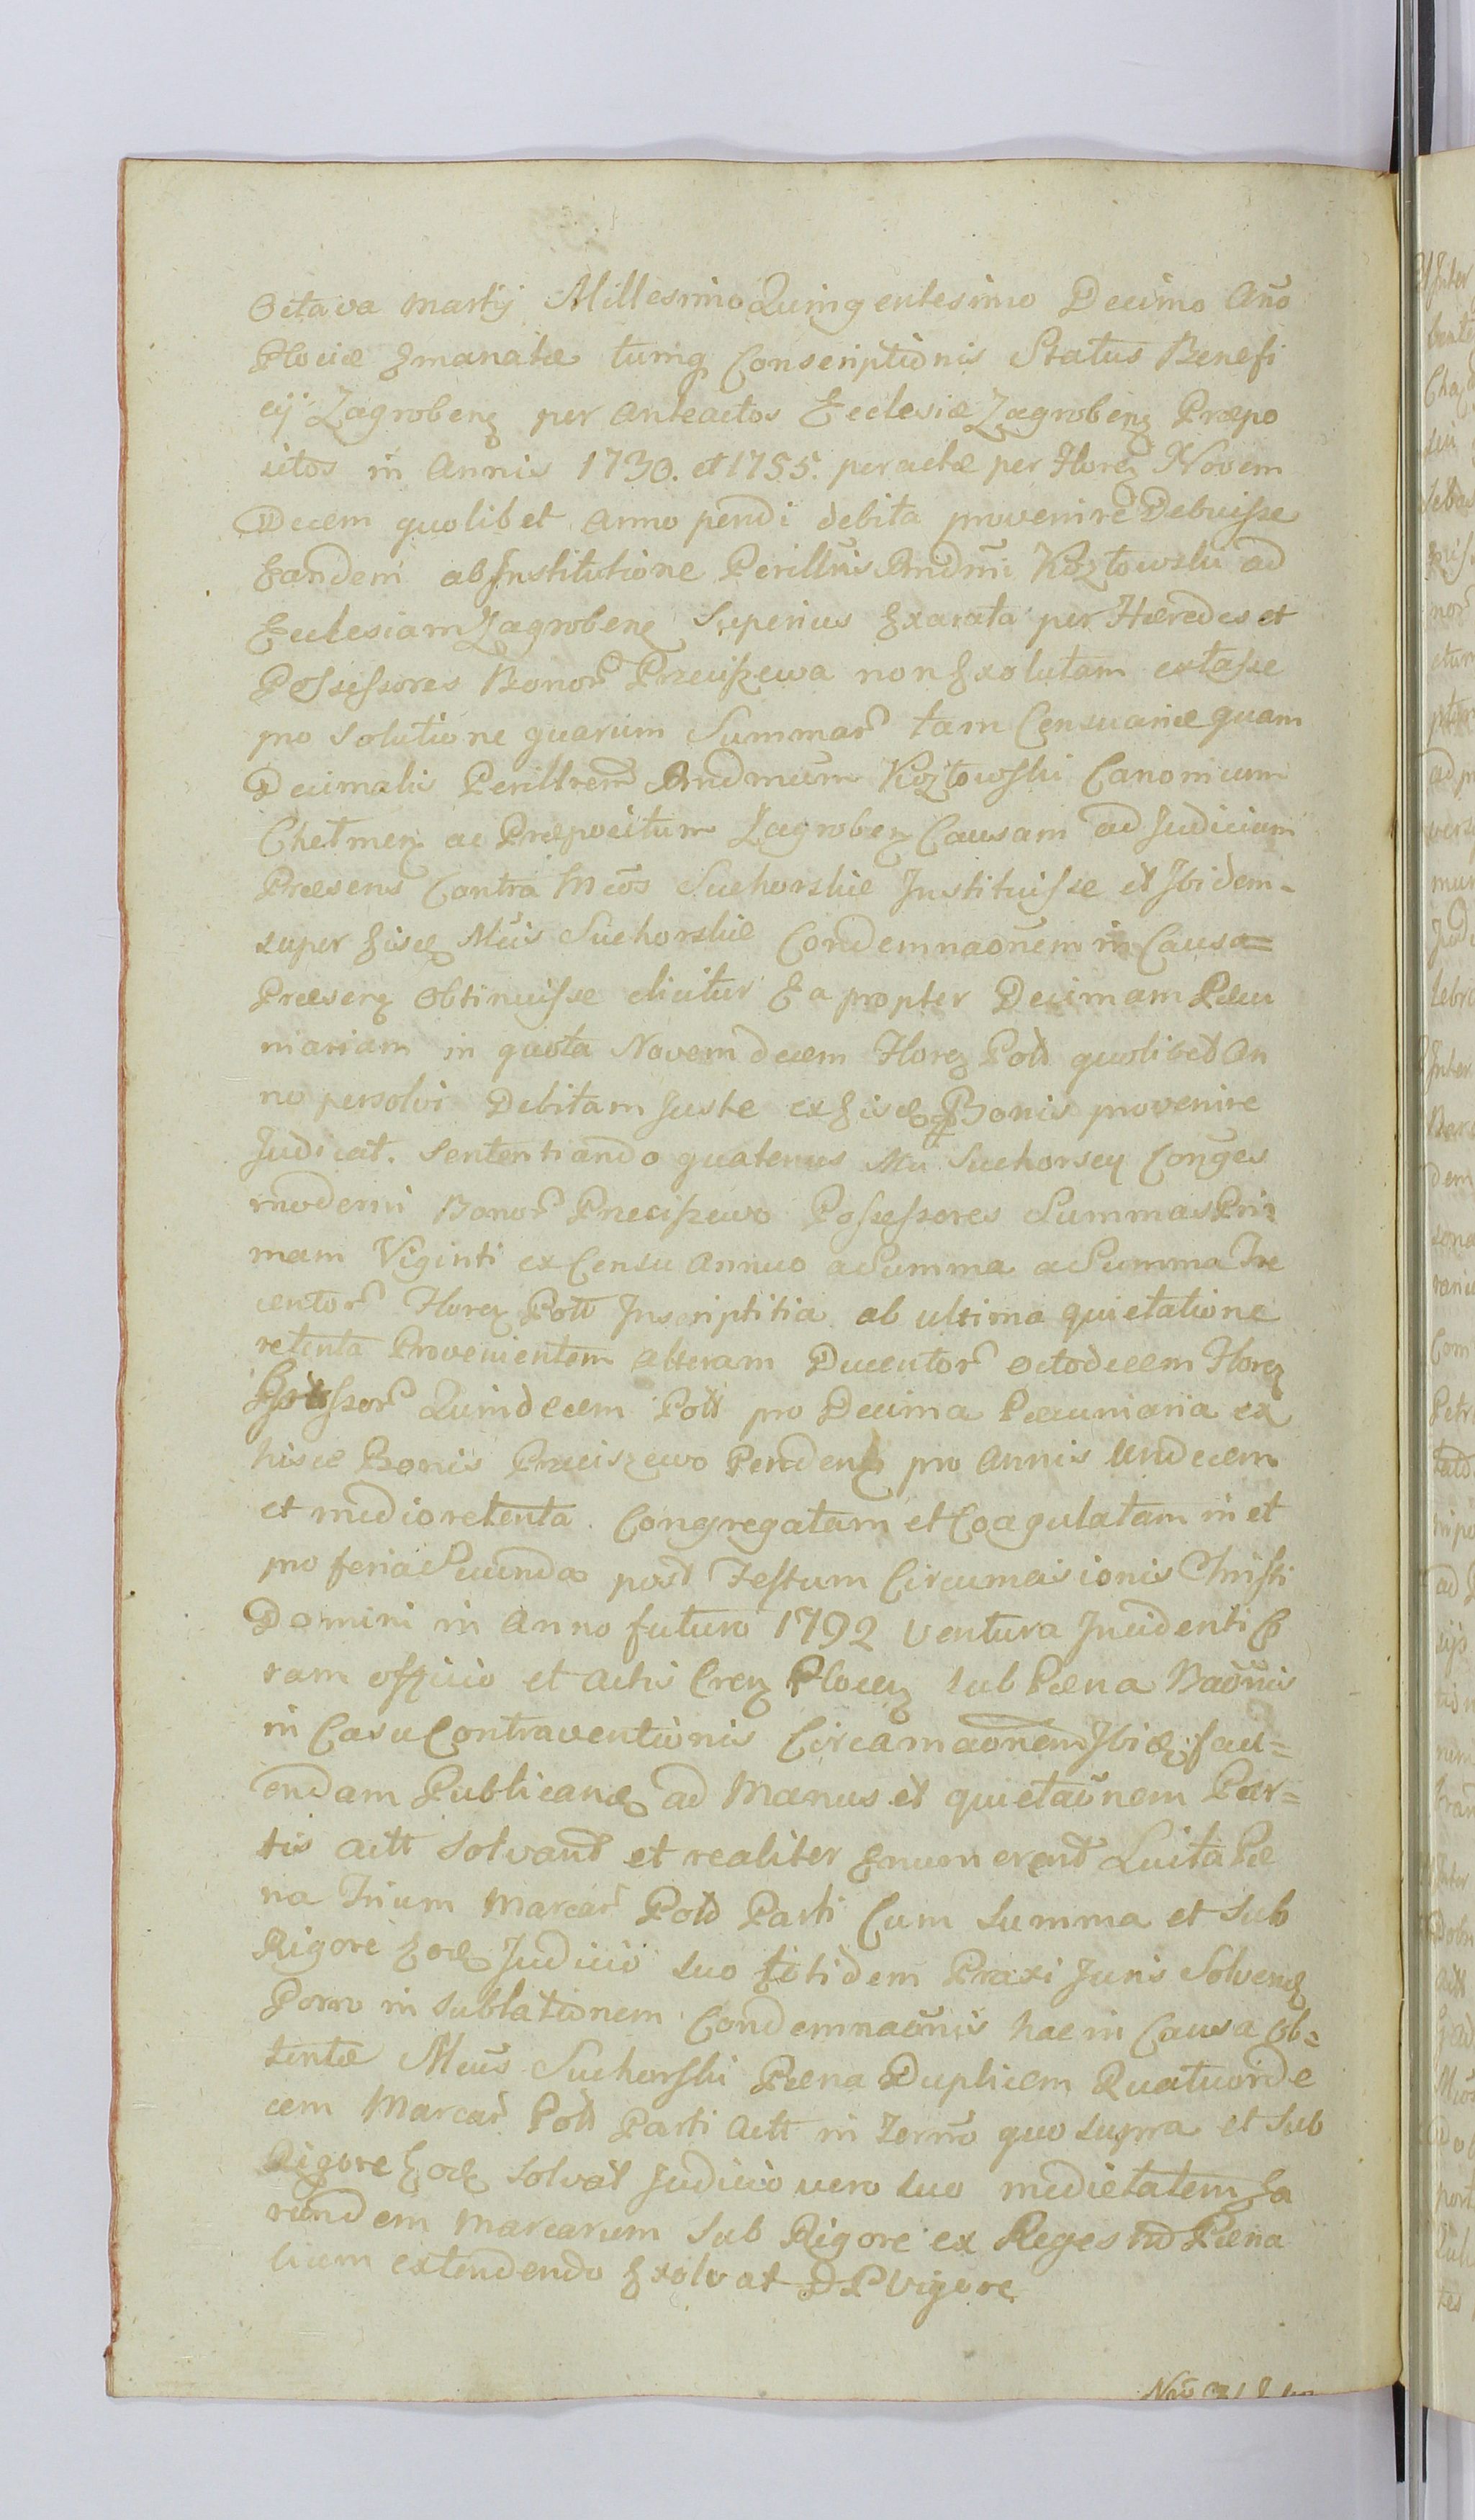 Octava Martij Millesimo Quingentesimo Decimo Año
Plociæ Emanatæ tumq Conscriptionis Status Benefi
cij Zagrobenz per anteactos Ecclesiæ Zagrobenz Præpo
sitos in Annis 1730. et 1755. peractæ per Florez Novem
Decem quolibet Anno pendi debita provenire Debuisse
Eandem ab Institutione Perillris Rndmi Kozłowski ad
Ecclesiam Zagrobenz Superius Exarata per Hæredes et
Possessores Bonor Przeciszewa non Exolutam extasse
pro Solutione quarum Summar tam Censuariæ quam
Decimalis Perillrem Rndmum Kozłowski Canonicum
Chełmenz ac Præpositum Zagrobenz Causam ad Judicium
Præsens Contra Mcos Suchorskie Instituisse et Ibidem-
super Eisd Mcis Suchorskie Condemnaõnem in Causa=
Præsenz Obtinuisse elicitur Ea propter Decimam Pecu
niariam in quota Novemdecem Florez Poll quolibet An
no persolvi Debitam Juste ex Eisd Bonis provenire
Judicat. Sententiando quatenus Mci Suchorscy Conges
moderni Bonor Przeciszewo Possessores Summas Pri=
mam Viginti ex Censu Annuo a Summa a Summa Tre
centor Florez Poll Inscriptitia ab ultima quietatione
retenta Provenientem Alteram Ducentor Octodecem Florez
Grossor Quindecem Poll pro Decima Pecuniaria ex
hisce Bonis Przeciszewo Pendenz pro Annis Undecem
et medio retenta. Congregatam et Coagulatam in et
pro feria Secunda post Festum Circumcisionis Christi
Domini in Anno futuro 1792 Ventura Incidenti Co
ram officio et Actis Crenz Plocenz sub Pæna Baõnis
in Casu Contraventionis Circa maõnem Ibid. faci=
endam Publicand ad Manus et quietaõnem Par=
tis Act Solvant et realiter Enumerent Luita Pæ
na Trium Marcar Poll Parti Cum Summa et sub
Rigore Eod Judicio suo totidem Praxi Juris Solvend
Porro in sublationem Condemnaõnis hac in Causa Ob=
tentæ Mcus Suchorski Pæna Duplicem Quatuorde
cem Marcar Poll Parti Act in Termo quo supra et sub
Rigore Eod solvat Judicio vero suo medietatem Ea
rundem Marcarum Sub Rigore ex Regestro Pæna
lium extendendo Exolvat D P Vigore